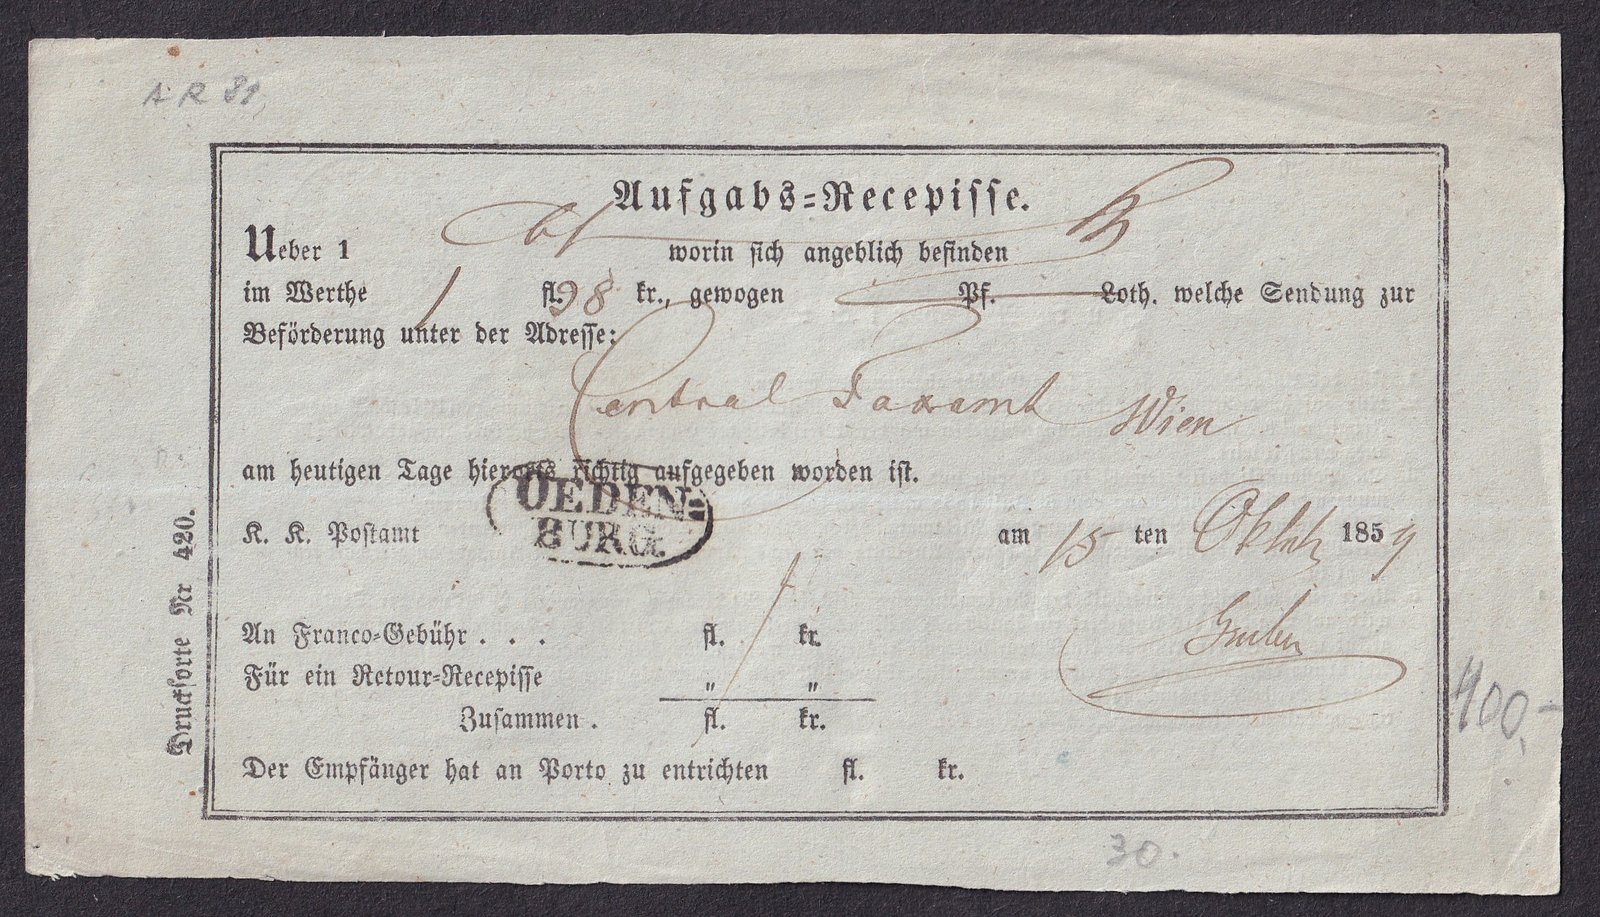 A R 81
Aufgabs=Recepisse.
Ueber 1 worin sich angeblich befinden
im Werthe 1 fl. 98 kr., gewogen Pf. Loth. welche Sendung zur
Beförderung unter der Adresse:
Central Taxamt Wien
am heutigen Tage hierorts richtig aufgegeben worden ist.
OEDEN=
BURG.
K. K. Postamt am 15 ten 1859
An Franco=Gebühr . . . fl. kr.
Für ein Retour=Recepisse " "
Zusammen . fl. kr.
Der Empfänger hat an Porto zu entrichten fl. kr.
Drucksorte Nr 420.
400.-
30.